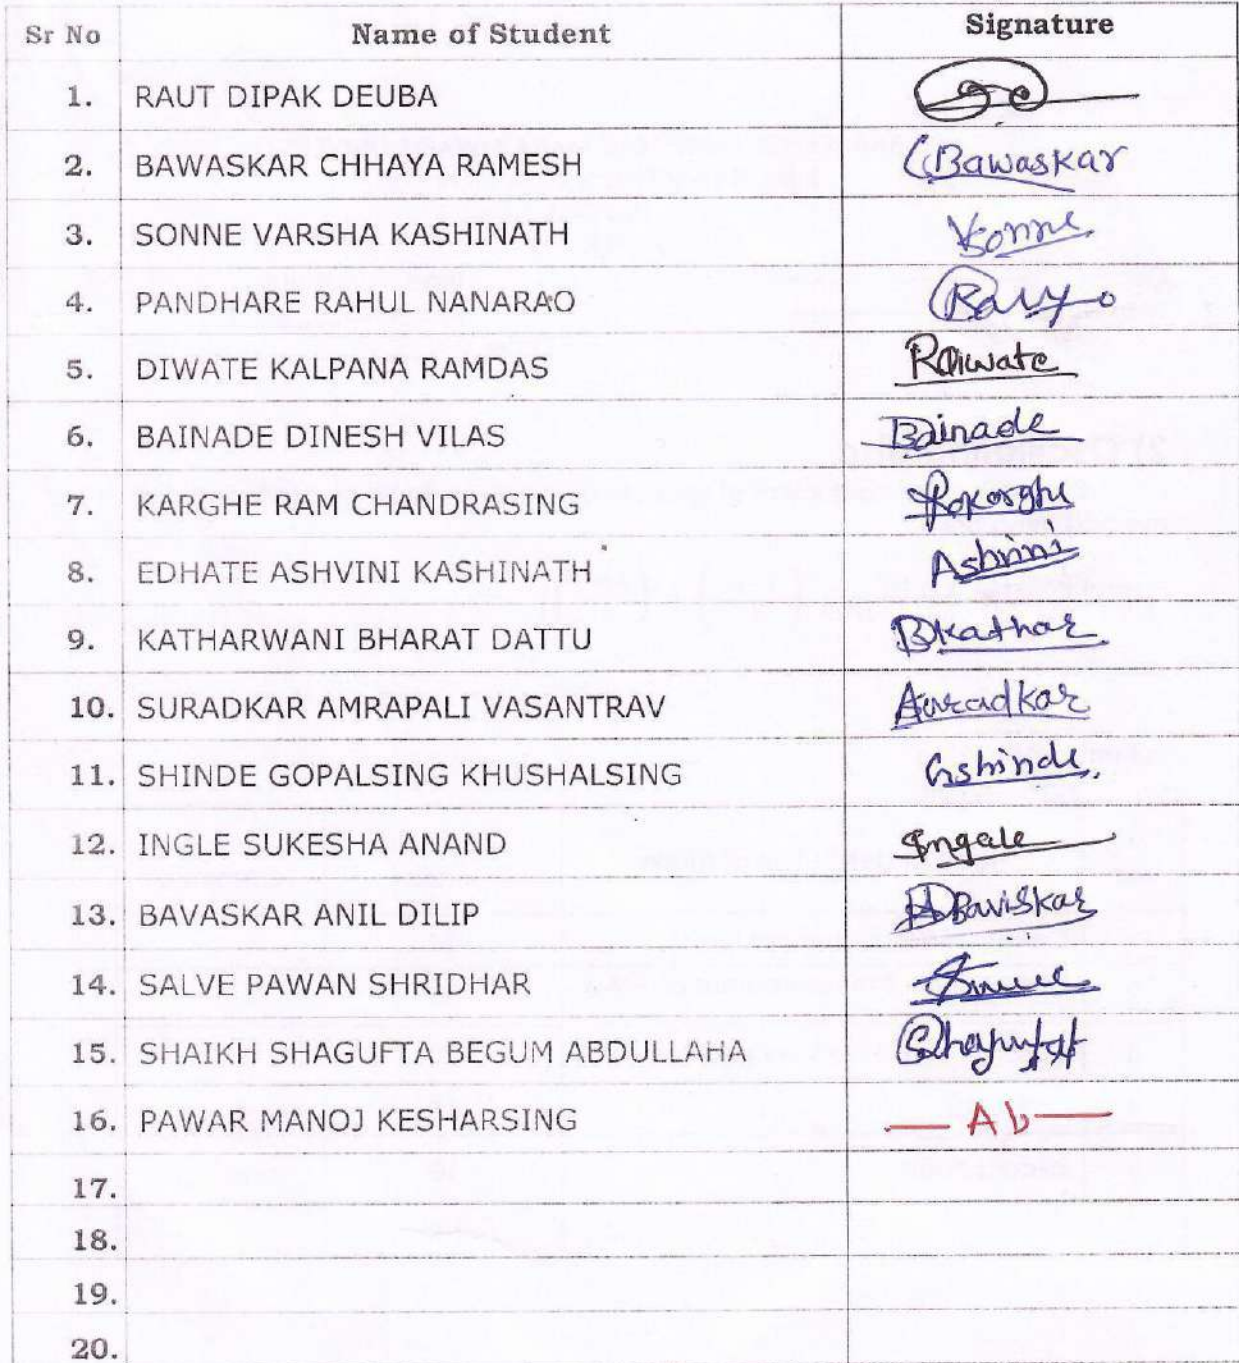 Sr No Name of Student Signature
1. RAUT DIPAK DEUBA
2. BAWASKAR CHHAYA RAMESH CBawaskar
3. SONNE VARSHA KASHINATH VSonne
4. PANDHARE RAHUL NANARAO
5. DIWATE KALPANA RAMDAS RDiwate
6. BAINADE DINESH VILAS Bainade
7. KARGHE RAM CHANDRASING
8. EDHATE ASHVINI KASHINATH Ashvini
9. KATHARWANI BHARAT DATTU BKathar
10. SURADKAR AMRAPALI VASANTRAV
11. SHINDE GOPALSING KHUSHALSING Gshinde
12. INGLE SUKESHA ANAND Ingale
13. BAVASKAR ANIL DILIP ADBaviskar
14. SALVE PAWAN SHRIDHAR
15. SHAIKH SHAGUFTA BEGUM ABDULLAHA
16. PAWAR MANOJ KESHARSING — Ab —
17.
18.
19.
20.